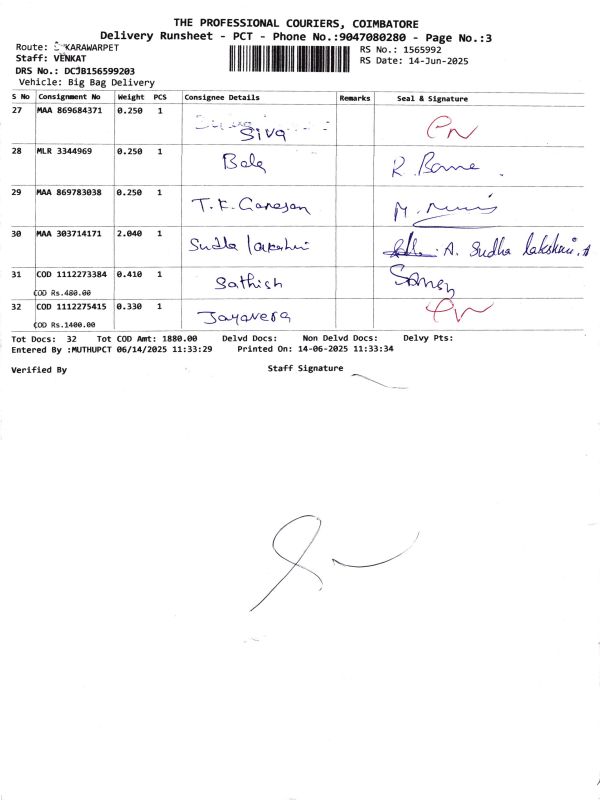 THE PROFESSIONAL COURIERS, COIMBATORE
Delivery Runsheet - PCT - Phone No.:9047080280 - Page No.:3
Route: KARAWARPET
RS No.: 1565992
Staff: VENKAT
RS Date: 14-Jun-2025
DRS No.: DCJB156599203
Vehicle: Big Bag Delivery
S No Consignment No Weight PCS Consignee Details Remarks Seal & Signature
27 MAA 869684371 0.250 1 Siva
28 MLR 3344969 0.250 1 Bala R. Bama
29 MAA 869783038 0.250 1 T.K. Ganesan
30 MAA 303714171 2.040 1 Sudha lakshmi A. Sudha lakshmi. A
31 COD 1112273384 0.410 1 Sathish
COD Rs.480.00
32 COD 1112275415 0.330 1 Jayaveera
COD Rs.1400.00
Tot Docs: 32 Tot COD Amt: 1880.00 Delvd Docs: Non Delvd Docs: Delvy Pts:
Entered By :MUTHUPCT 06/14/2025 11:33:29 Printed On: 14-06-2025 11:33:34
Verified By Staff Signature